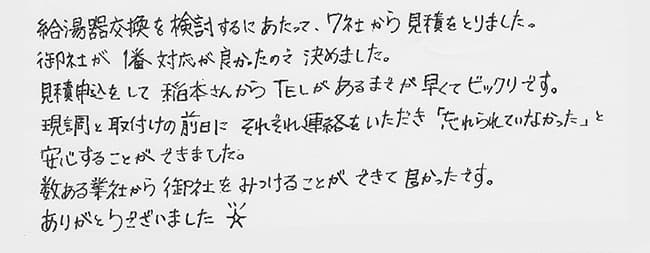 給湯器交換を検討するにあたって、7社から見積をとりました。
御社が1番対応が良かったので決めました。
見積申込をして稲本さんからTELがあるまでが早くてビックリです。
現調と取付けの前日にそれぞれ連絡をいただき「忘れられていなかった」と
安心することができました。
数ある業社から御社をみつけることができて良かったです。
ありがとうございました☆